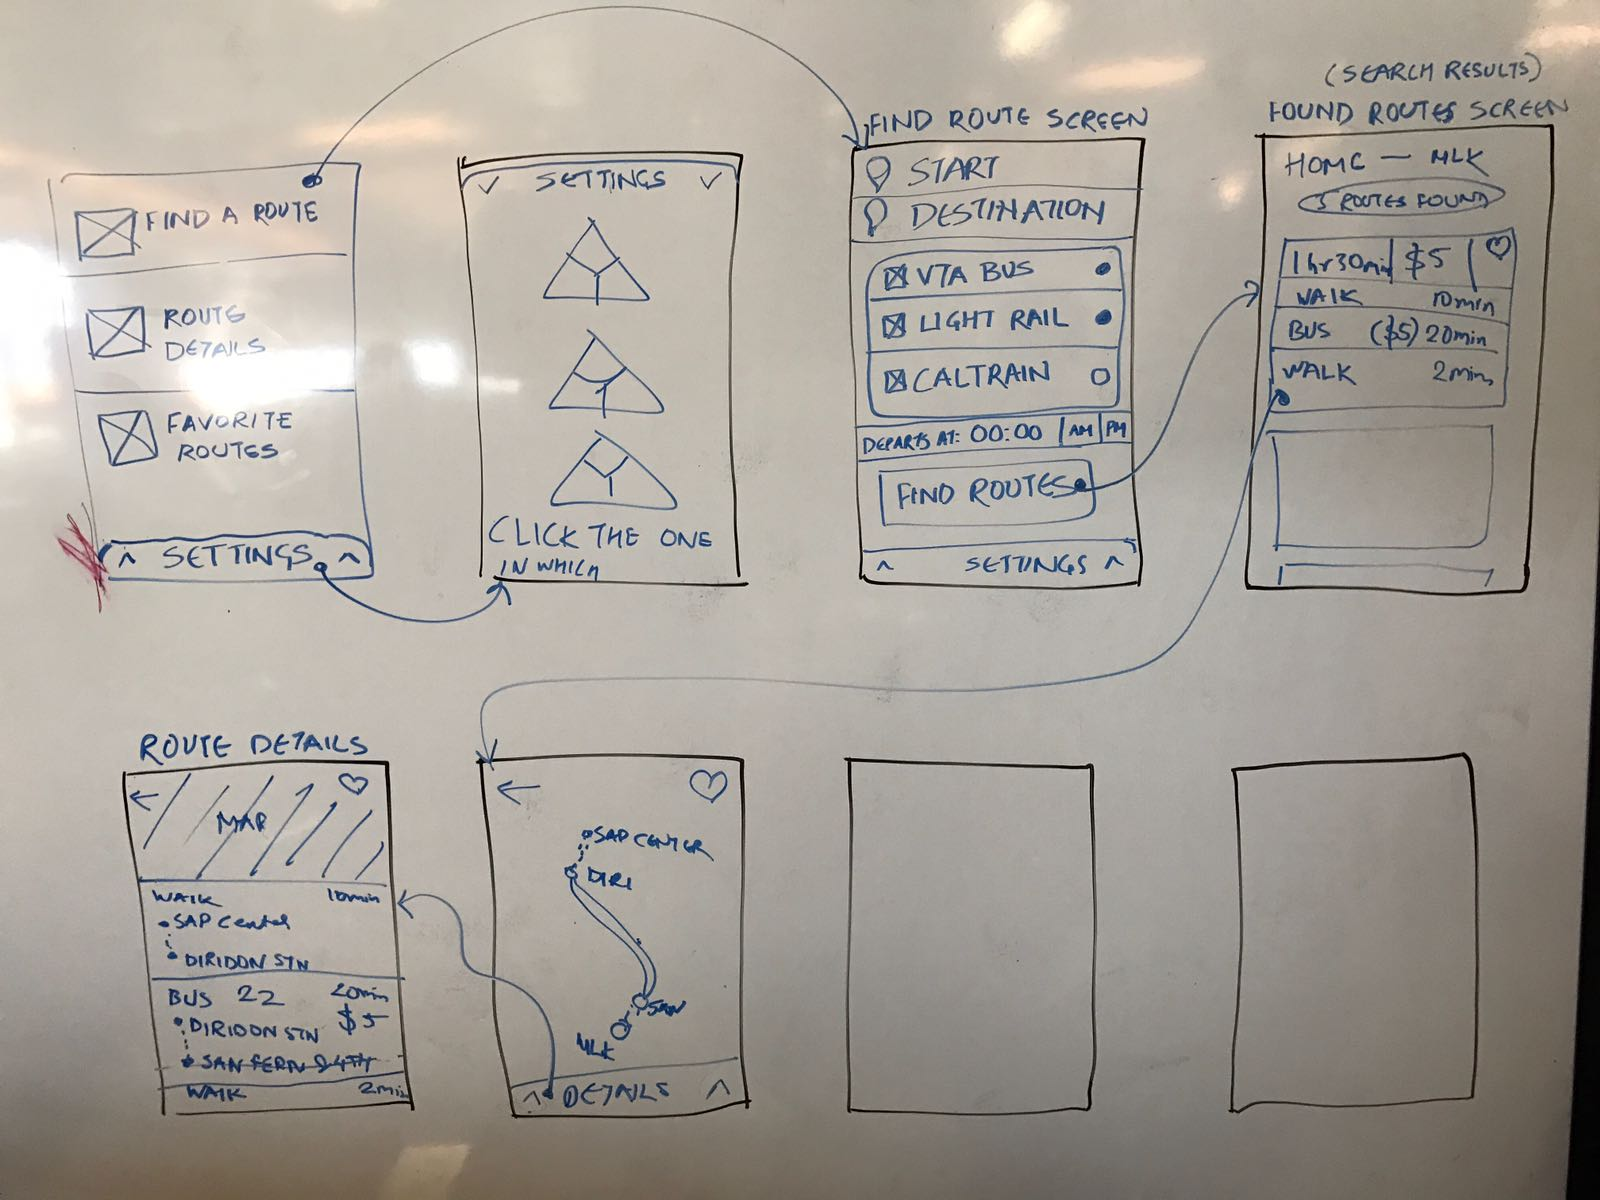 FIND A ROUTE
ROUTE
DETAILS
FAVORITE
ROUTES
^ SETTINGS ^
SETTINGS
CLICK THE ONE
IN WHICH
FIND ROUTE SCREEN
START
DESTINATION
VTA BUS
LIGHT RAIL
CALTRAIN
DEPARTS AT: 00:00 AM PM
FIND ROUTES
^ SETTINGS ^
(SEARCH RESULTS)
FOUND ROUTES SCREEN
HOME — MLK
ROUTES FOUND
1hr30min $5
WALK 10min
BUS ($5) 20min
WALK 2min
ROUTE DETAILS
MAP
WALK 10min
SAP Center
DIRIDON STN
BUS 22 20min
DIRIDON STN $5
SAN FERN & 4TH
WALK 2min
SAP CENTER
DIRI
SAN
MLK
^ DETAILS ^